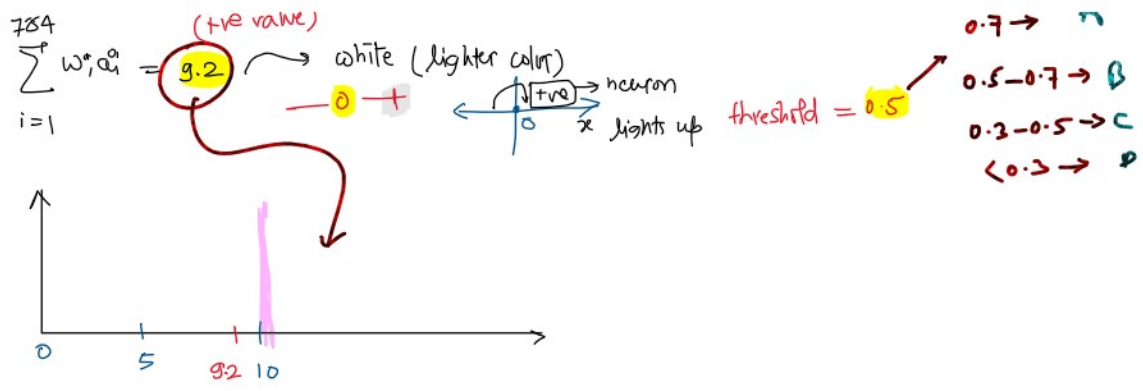 784 (+ve value)
∑ wᵢaᵢ = 9.2 → white (lighter color)
i=1
— 0 — +
+ve → neuron
0 x lights up
threshold = 0.5
0.7 →
0.5-0.7 → B
0.3-0.5 → C
<0.3 →
0 5 9.2 10